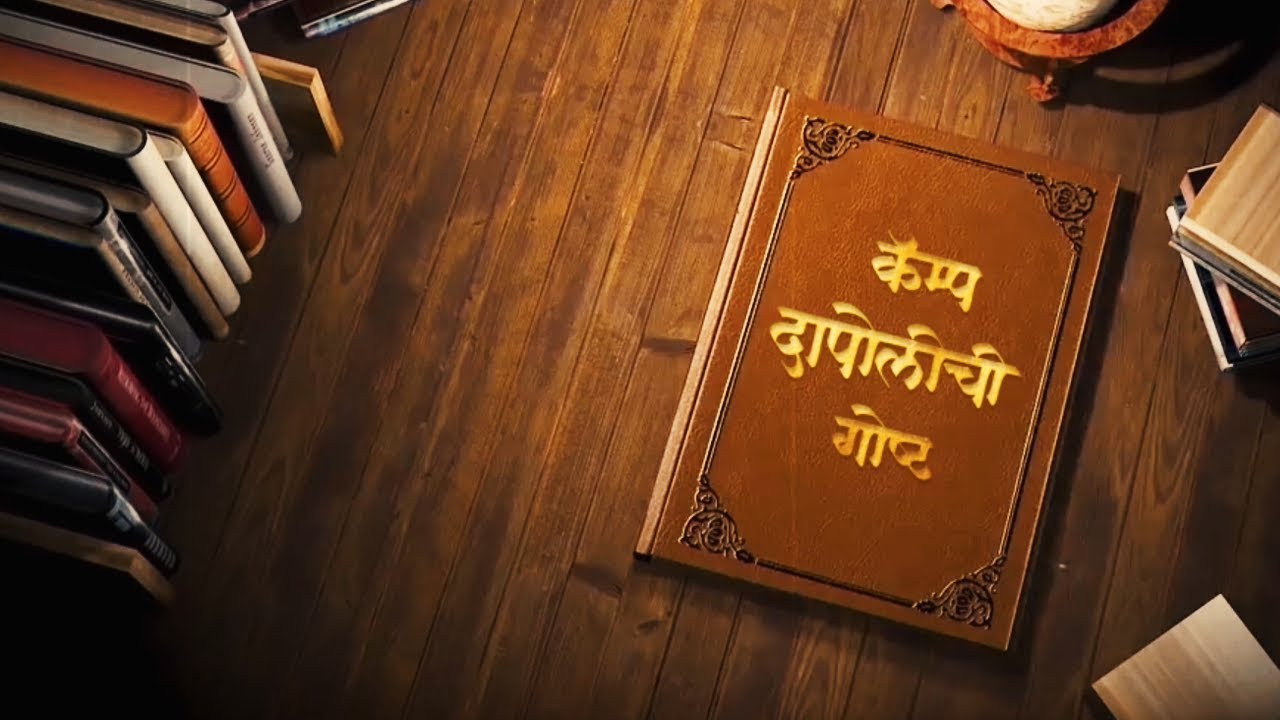 कॅम्प
दापोलीची
गोष्ट